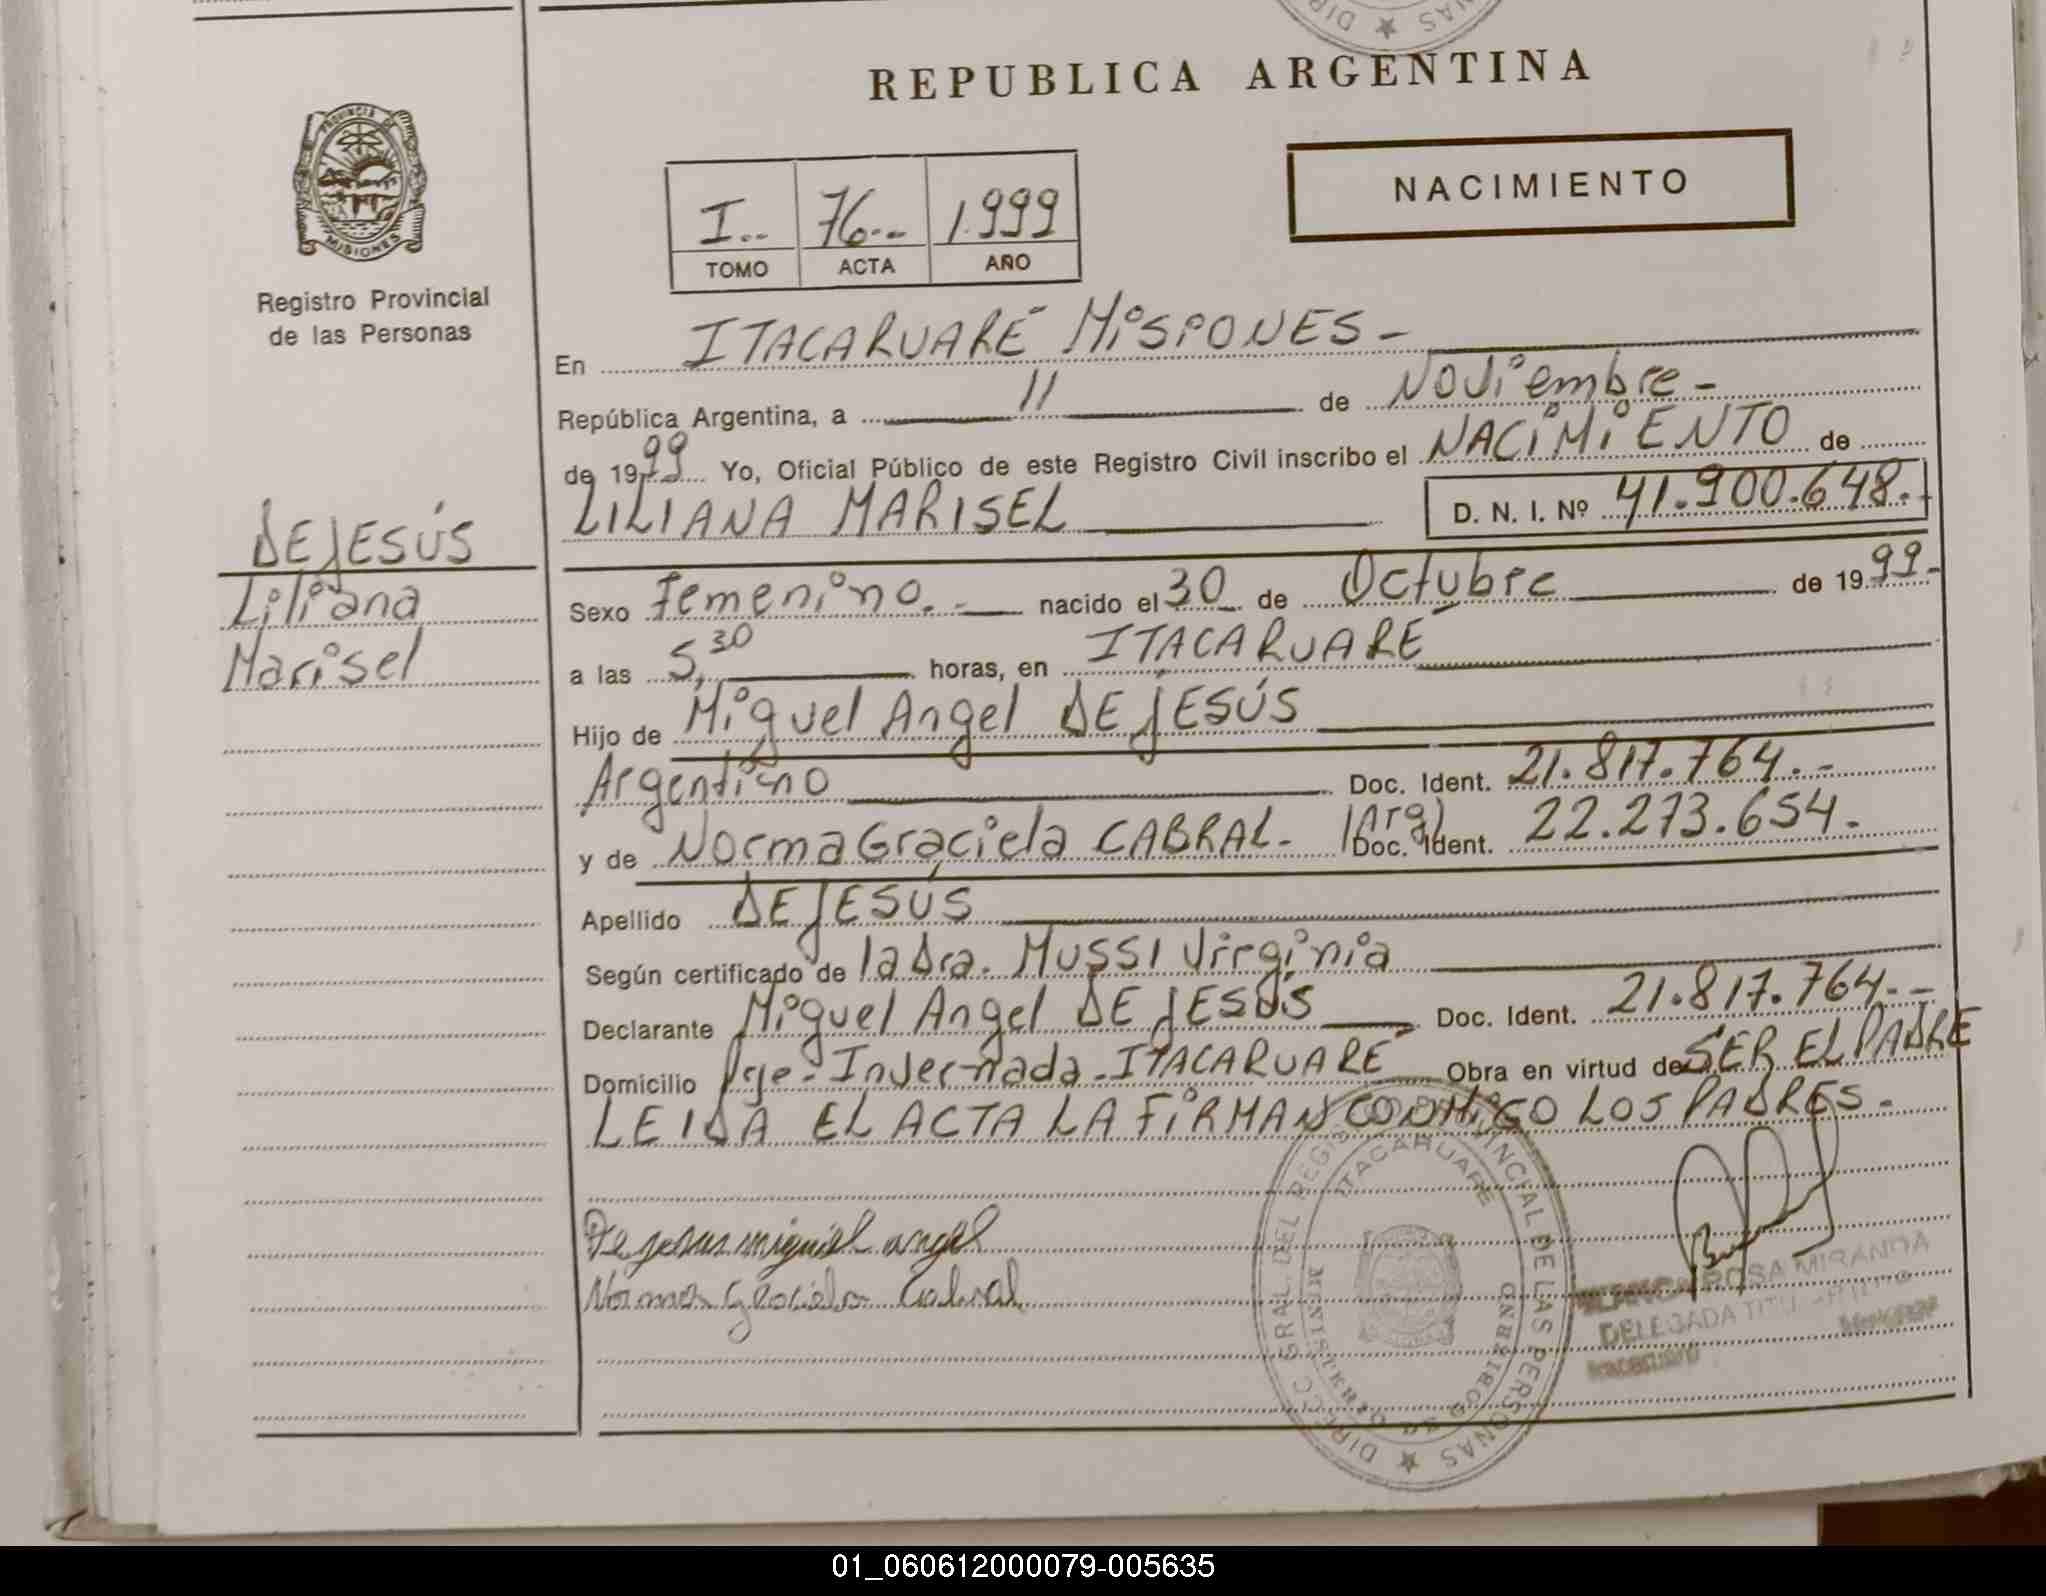 DIR ★ NAS
REPUBLICA ARGENTINA
PROVINCIA DE
MISIONES
Registro Provincial
de las Personas
NACIMIENTO
I.. 76.-- 1.999
TOMO ACTA AÑO
En ITACARUARÉ MiSiONES -
República Argentina, a 11 de Noviembre -
de 1999 Yo, Oficial Público de este Registro Civil inscribo el NACiMiENTO de
LILIANA MARISEL D. N. I. Nº 41.900.648.-
DE JESÚS
Liliana
Marisel
Sexo Femenino.- nacido el 30 de Octubre de 1999-
a las 5,30 horas, en ITACARUARÉ
Hijo de Miguel Angel DE JESÚS
Argentino Doc. Ident. 21.817.764.-
y de Norma Graciela CABRAL- (Arg) Doc. Ident. 22.273.654.-
Apellido DE JESÚS
Según certificado de la Dra. MUSSI Virginia
Declarante Miguel Angel DE JESÚS Doc. Ident. 21.817.764.--
Domicilio Pje- Invernada - ITACARUARÉ Obra en virtud de SER EL PADRE
LEIDA EL ACTA LA FiRMAN CONMiGO LOS PADRES.-
De jesus miguel angel
Norma Graciela Cabral
DIRECC GRAL. DEL REGISTRO PROVINCIAL DE LAS PERSONAS ★
ITACARUARE
MINISTERIO DE GOBIERNO
BLANCA ROSA MIRANDA
DELEGADA TITU
01_060612000079-005635